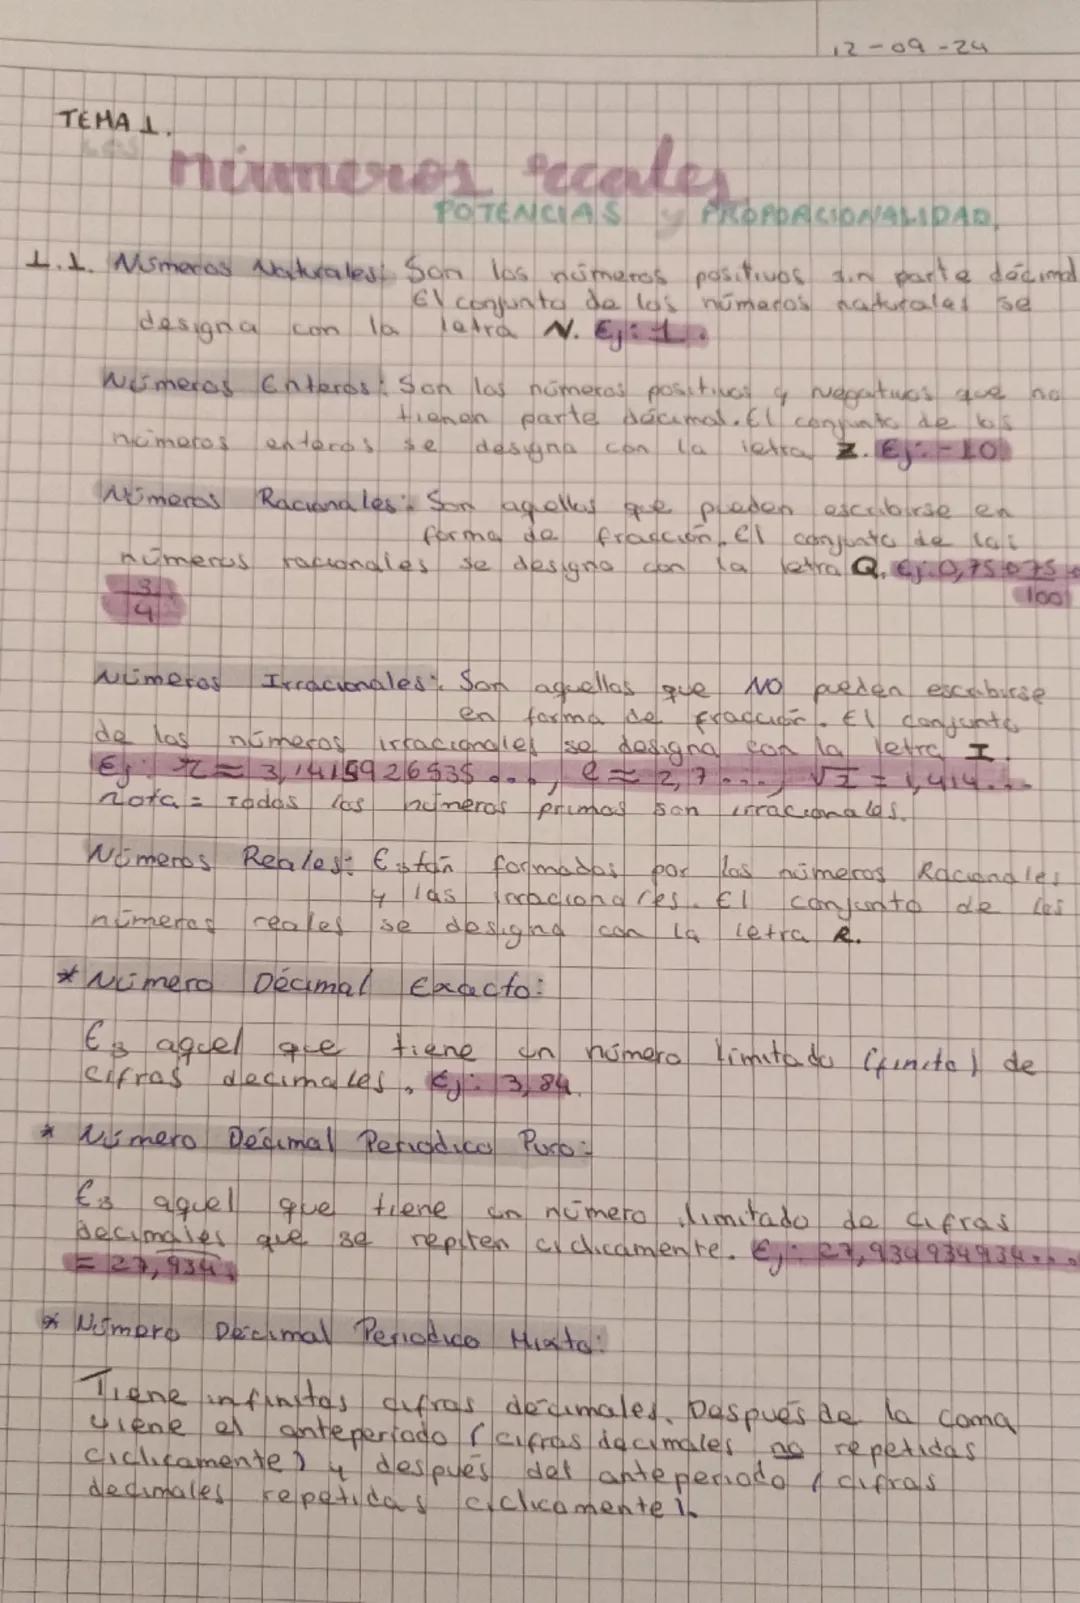 12-09-24
TEMA 1.
Los números reales
POTENCIAS y PROPORCIONALIDAD.
1.1. Números Naturales: Son los números positivos sin parte décimal
El conjunto de los números naturales se
designa con la letra N. Ej: 1.
Números Enteros: Son los números positivos y negativos que no
tienen parte décimal. El conjunto de los
números enteros se designa con la letra Z. Ej: -10.
Números Racionales: Son aquellos que pueden escribirse en
forma de fracción. El conjunto de los
números racionales se designa con la letra Q. Ej: 0,75 o 75/100 o
3/4
Números Irracionales: Son aquellos que NO pueden escribirse
en forma de fracción. El conjunto
de los números irracionales se designa con la letra I.
Ej: π ≈ 3,1415926535..., e ≈ 2,7..., √2 = 1,414...
nota = Todos los números primos son irracionales.
Números Reales: Están formados por los números Racionales
y las irracionales. El conjunto de los
números reales se designa con la letra R.
* Número Décimal Exacto:
Es aquel que tiene un número limitado (finito) de
cifras decimales. Ej: 3,84.
* Número Décimal Periodico Puro:
Es aquel que tiene un número limitado de cifras
decimales que se repiten ciclicamente. Ej: 27,934934934...
= 27,934.
* Número Décimal Periodico Mixto:
Tiene infinitas cifras décimales. Después de la coma
viene el anteperiodo (cifras decimales no repetidas
ciclicamente) y después del anteperiodo (cifras
decimales repetidas ciclicamente).